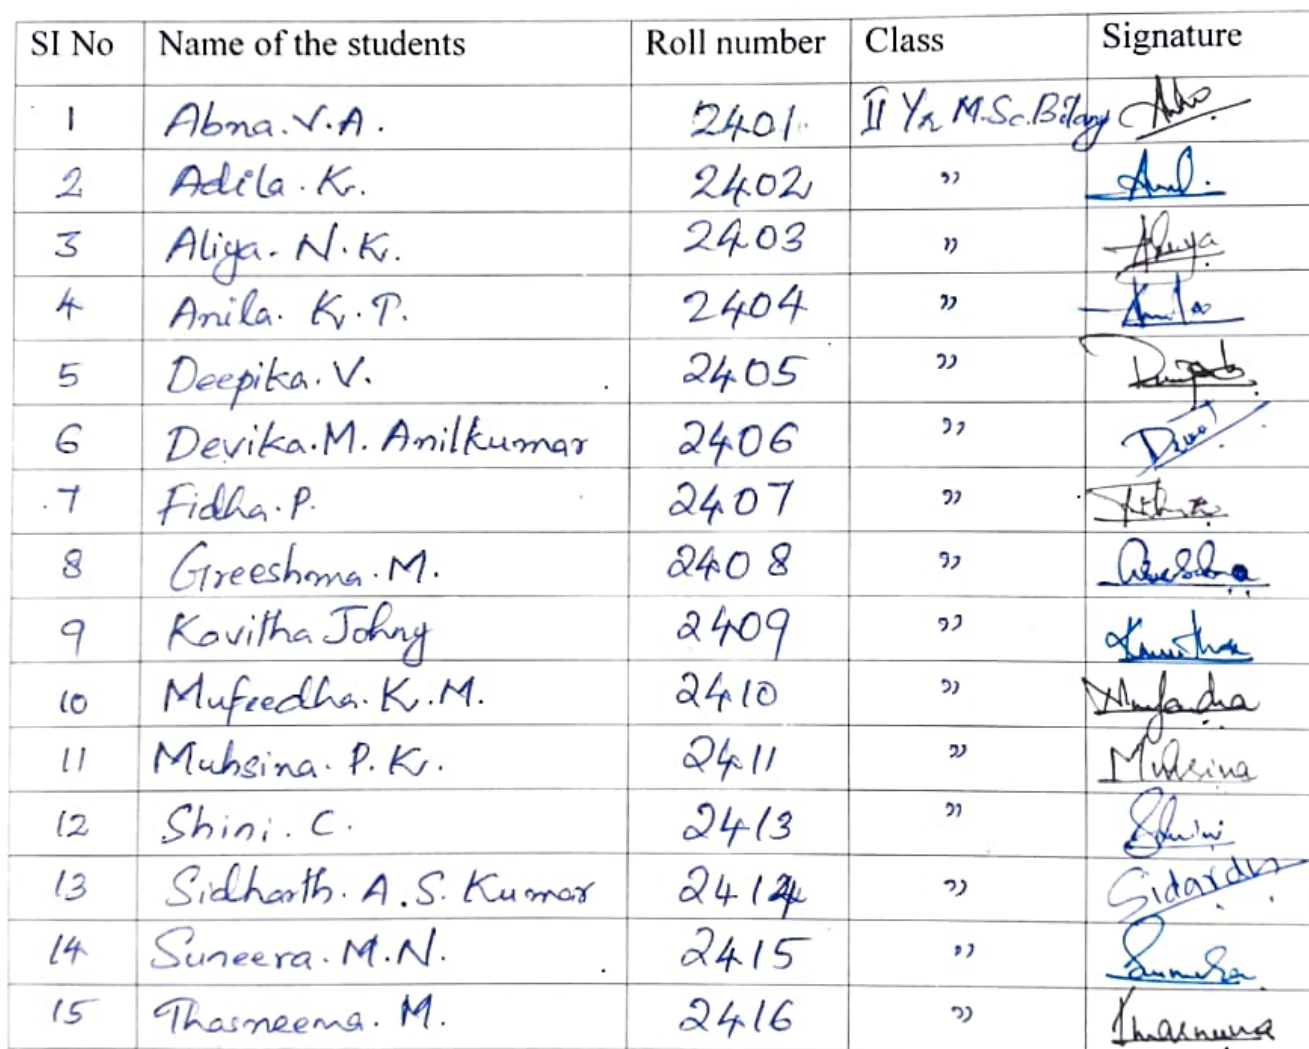 SI No Name of the students Roll number Class Signature
1 Abna.V.A. 2401 II Yr M.Sc.Botany
2 Adila.K. 2402 ”
3 Aliya.N.K. 2403 ”
4 Anila.K.P. 2404 ”
5 Deepika.V. 2405 ”
6 Devika.M.Anilkumar 2406 ”
7 Fidha.P. 2407 ”
8 Greeshma.M. 2408 ”
9 Kavitha Johny 2409 ”
10 Mufeedha.K.M. 2410 ”
11 Muhsina.P.K. 2411 ” Muhsina
12 Shini.C. 2413 ” Shini
13 Sidharth.A.S.Kumar 2414 ” Sidardh
14 Suneera.M.N. 2415 ”
15 Thasneema.M. 2416 ”